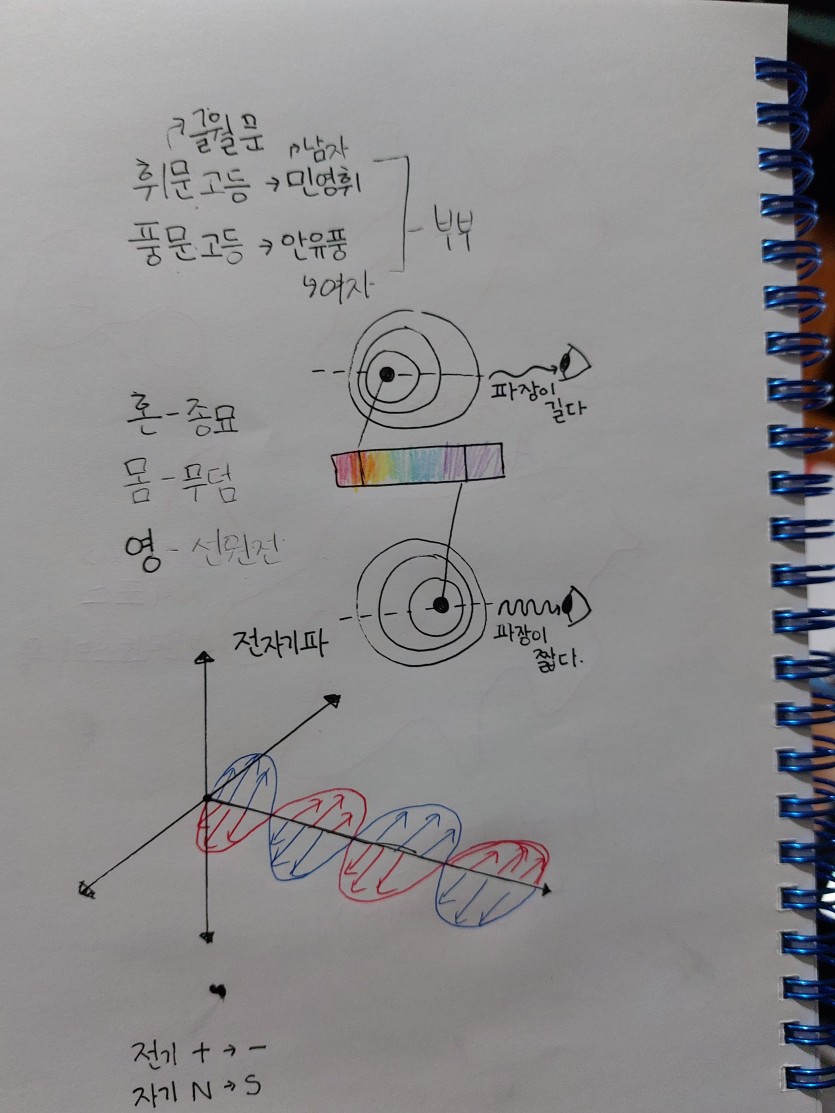 ↗글월문
↱남자
휘문고등 → 민영휘
부부
풍문고등 → 안유풍
↳여자
파장이
길다
혼 - 종묘
몸 - 무덤
영 - 선원전
파장이
짧다.
전자기파
전기 + → -
자기 N → S